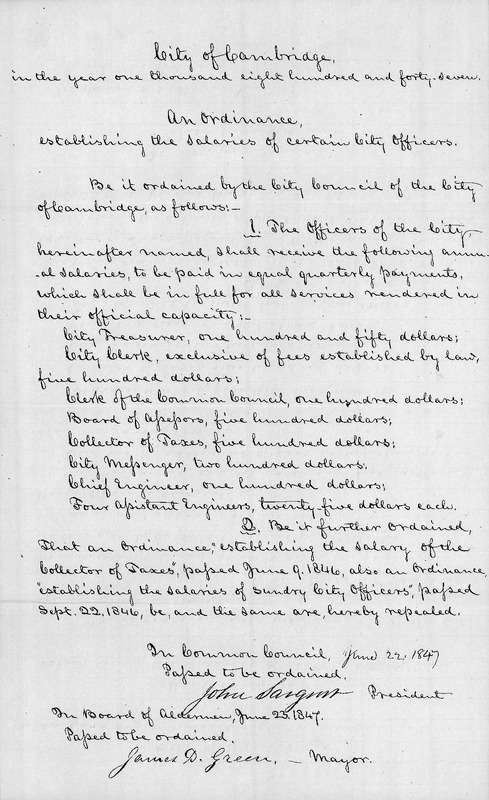 City of Cambridge,
in the year one thousand eight hundred and forty-seven.
An Ordinance,
establishing the salaries of certain City Officers.
Be it ordained by the City Council of the City
of Cambridge, as follows:—
1. The Officers of the City,
hereinafter named, shall receive the following annu-
-al salaries, to be paid in equal quarterly payments,
which shall be in full for all services rendered in
their official capacity:—
City Treasurer, one hundred and fifty dollars;
City Clerk, exclusive of fees established by law,
five hundred dollars;
Clerk of the Common Council, one hundred dollars;
Board of Aſseſsors, five hundred dollars;
Collector of Taxes, five hundred dollars;
City Meſsenger, two hundred dollars;
Chief Engineer, one hundred dollars;
Four Aſsistant Engineers, twenty-five dollars each.
2. Be it further ordained,
That an Ordinance, "establishing the salary of the
Collector of Taxes", paſsed June 9, 1846, also an Ordinance,
"establishing the salaries of sundry City Officers", paſsed
Sept. 22, 1846, be, and the same are, hereby repealed.
In Common Council, June 22. 1847
Paſsed to be ordained.
John Sargent President
In Board of Aldermen, June 23. 1847.
Paſsed to be ordained.
James D. Green, — Mayor.